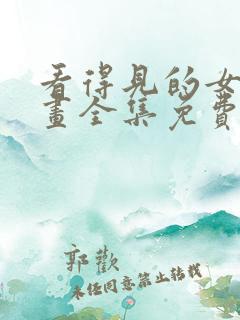 看得见的女
画全集免费
郭歡
未经同意禁止转载